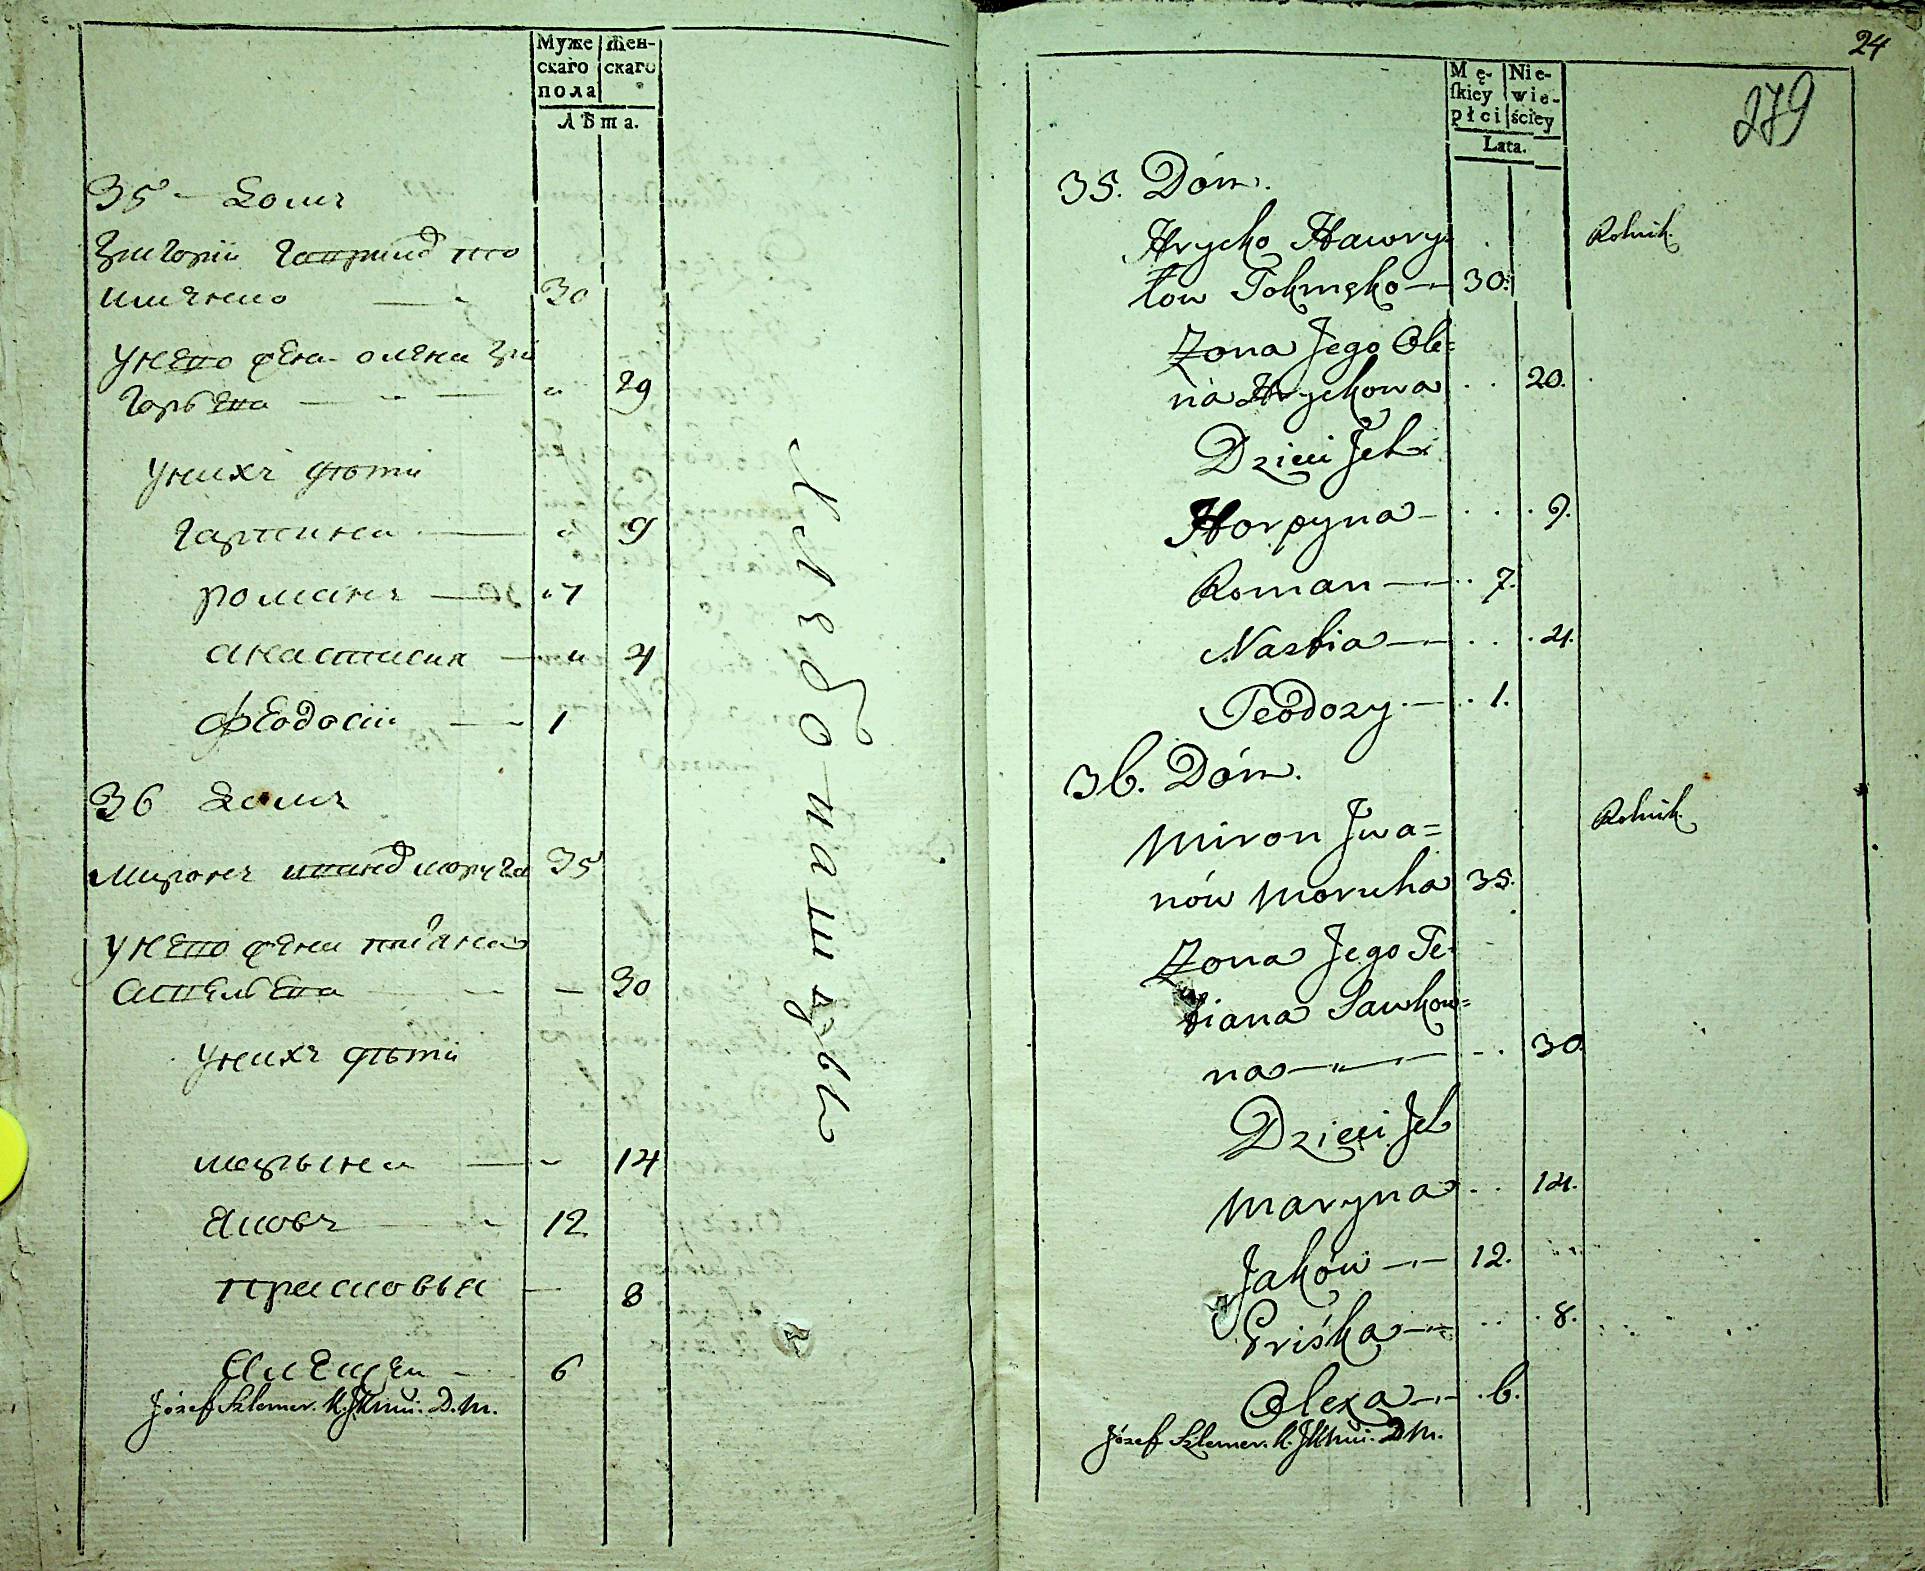 Муже
скаго
пола
Жен-
скаго
Лѣта.
35 — Домъ
Григорій Гаврилов то
кмачко — 30
у него жена олена гри
горьева — 29
у нихъ дѣти
гарпина — 9
романъ — 7
анастасия — 4
феодосій — 1
36 Домъ
миронъ иванов моруга 35
у него жена татяна
савельева — 30
у нихъ дѣти
марына — 14
яковъ — 12
прасковья — 8
алексеи — 6
Józef Szlemer. K. D. M.
Хлебопашцы
24
279
Mę-
ſkiey
płci
Nie-
wie-
ściey
Lata.
35. Dóm.
Hrycko Hawry- Rolnik.
łow Tokmęko — 30.
Zona Jego Ole=
na Hryckowa . . 20.
Dzieci Jch
Horpyna — . . . 9.
Roman — . . 7.
Nastia — . . . 4.
Teodozy — . . 1.
36. Dóm.
Miron Jwa= Rolnik.
nów Morucha 35.
Zona Jego Te-
tiana Sawkow=
na — . . 30.
Dzieci Jch
Maryna . . 14.
Jaków — 12.
Priśka — . . . 8.
Olexa — . 6.
Józef Szlemer. K. D. M.